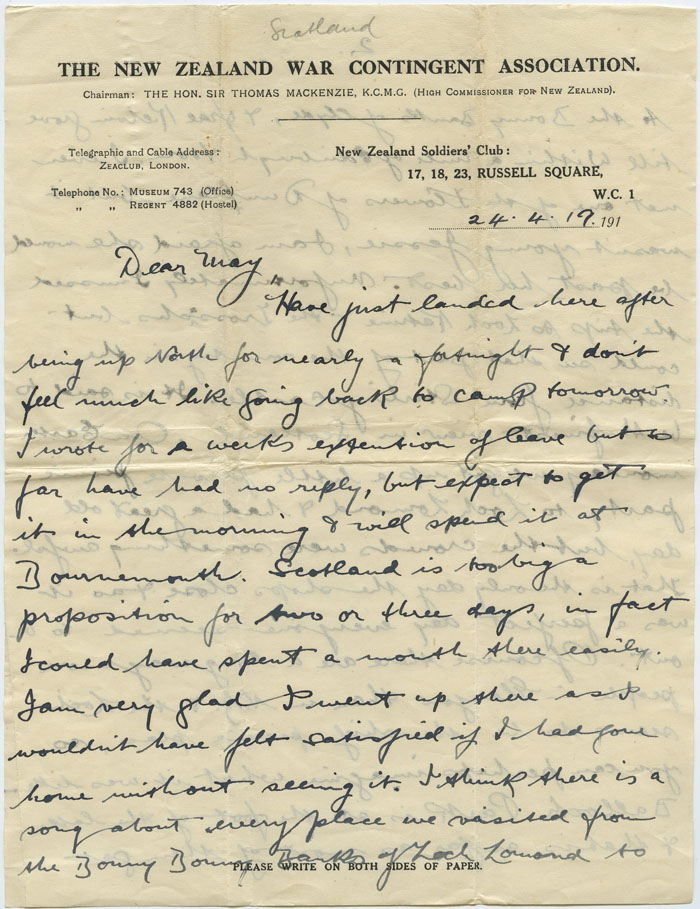 Scotland
2.
THE NEW ZEALAND WAR CONTINGENT ASSOCIATION.
Chairman: THE HON. SIR THOMAS MACKENZIE, K.C.M.G. (HIGH COMMISSIONER FOR NEW ZEALAND).
Telegraphic and Cable Address:
ZEACLUB, LONDON.
Telephone No.: MUSEUM 743 (Office)
" " REGENT 4882 (Hostel)
New Zealand Soldiers' Club:
17, 18, 23, RUSSELL SQUARE,
W.C. 1
24.4.19. 191
Dear May,
Have just landed here after
being up North for nearly a fortnight & don't
feel much like going back to camp tomorrow.
I wrote for a weeks extention of leave but so
far have had no reply, but expect to get
it in the morning & will spend it at
Bournemouth. Scotland is too big a
proposition for two or three days, in fact
I could have spent a month there easily.
I am very glad I went up there as I
wouldn't have felt satisfied if I had gone
home without seeing it. I think there is a
song about every place we visited from
the Bonny Bonny Banks of Loch Lomond to
PLEASE WRITE ON BOTH SIDES OF PAPER.